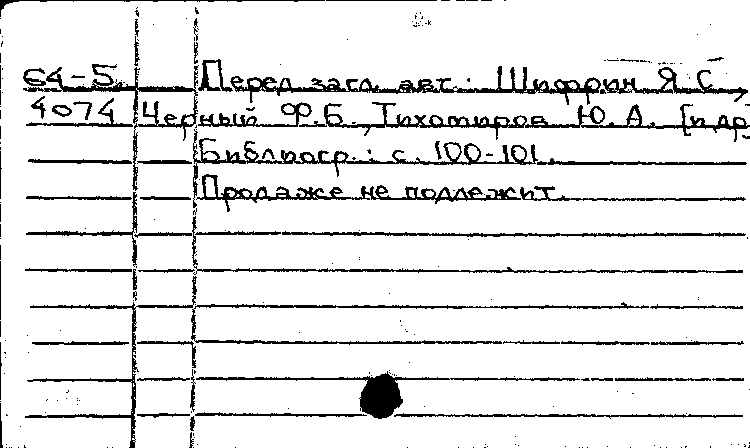 64-5 Перед загл. авт.: Шифрин Я.С.,
4074 Черный Ф.Б., Тихомиров Ю.А. [и др
Библиогр.: с. 100-101.
Продаже не подлежит.